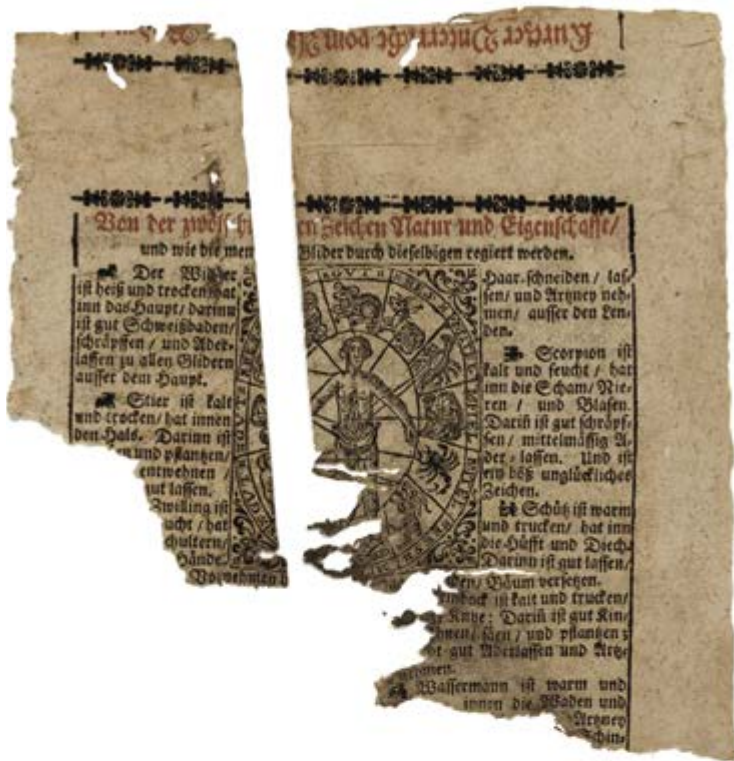 Kurtzer Unterricht vom
Von der zwölff hi en Zeichen Natur und Eigenschafft/
und wie die men Glider durch dieselbigen regiert werden.
Der Wider
ist heiß und trocken/hat
inn das Haupt/ darinn
ist gut Schweißbaden/
schräpffen / und Ader-
lassen zu allen Glidern
ausser dem Haupt.
Stier ist kalt
und trocken/ hat innen
den Hals. Darinn ist
en und pflantzen/
entwehnen /
ut lassen.
Zwilling ist
ucht / hat
chultern/
Hände.
Haar schneiden / las-
sen/ und Artzney neh-
men/ ausser den Len-
den.
Scorpion ist
kalt und feucht / hat
inn die Scham/ Nie-
ren / und Blasen.
Darin̄ ist gut schräpf-
fen/ mittelmässig A-
der-lassen. Und ist
ein böß unglückliches
Zeichen.
Schütz ist warm
und trucken/ hat inn
die Hüfft und Diech.
Darinn ist gut lassen/
den/ Bäum versetzen.
inbock ist kalt und trucken/
Knye: Darin̄ ist gut Kin-
hnen/ säen / und pflantzen
t gut Aderlassen und Artz-
Wassermann ist warm und
innen die Waden und
Artzney
Schin-